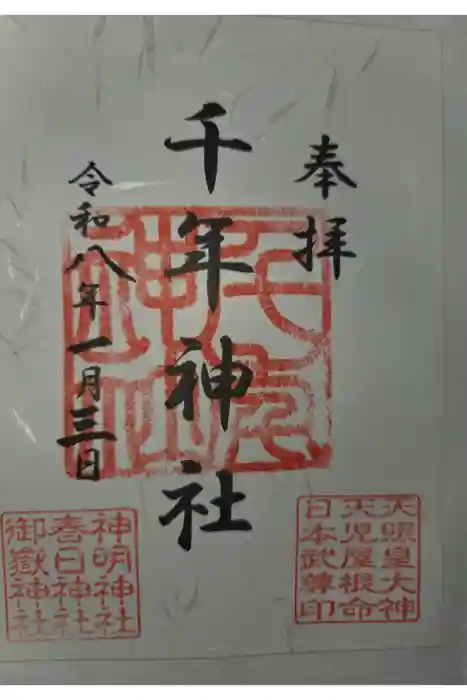 奉拝
千年神社
令和八年一月三日
天照皇大神
天児屋根命
日本武尊印
神明神社
春日神社
御嶽神社